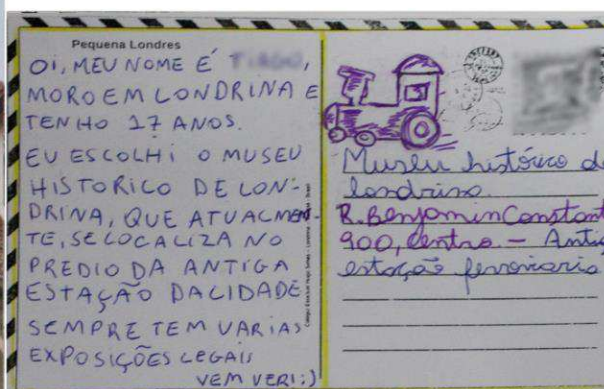 Pequena Londres
OI, MEU NOME É
MORO EM LONDRINA E
TENHO 17 ANOS.
EU ESCOLHI O MUSEU
HISTORICO DE LON-
DRINA, QUE ATUALMEN-
TE, SE LOCALIZA NO
PREDIO DA ANTIGA
ESTAÇÃO DA CIDADE
SEMPRE TEM VARIAS
EXPOSIÇÕES LEGAIS
VEM VER! :)
Museu histórico de
londrina
R. Benjamin Constant
900, centro - Antig
estação ferroviaria